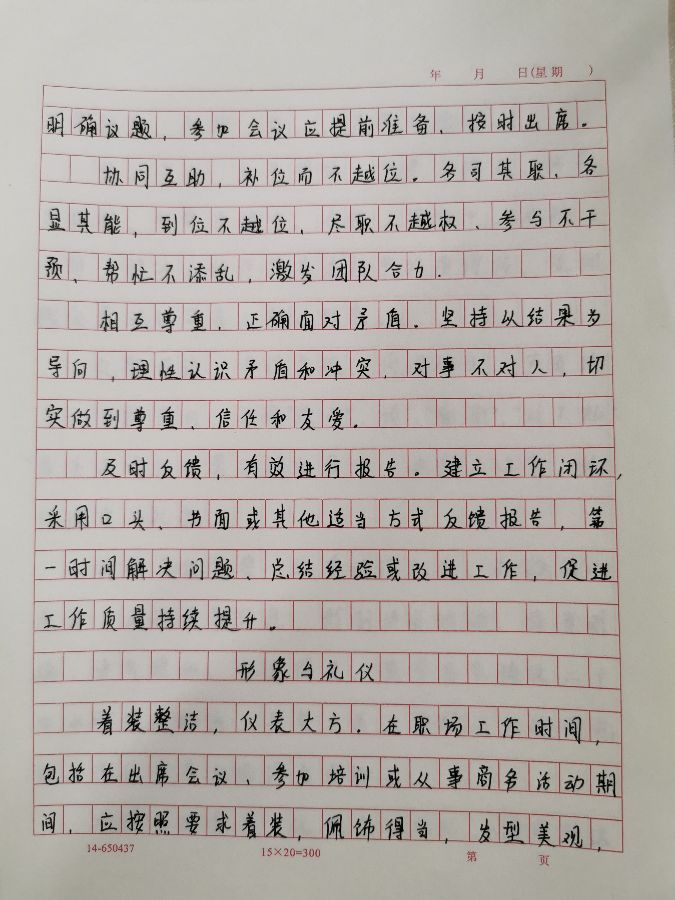 年 月 日(星期 )
明确议题，参加会议应提前准备、按时出席。
协同互助，补位而不越位。各司其职、各
显其能，到位不越位，尽职不越权、参与不干
预、帮忙不添乱，激发团队合力.
相互尊重，正确面对矛盾。坚持以结果为
导向，理性认识矛盾和冲突，对事不对人，切
实做到尊重、信任和友爱。
及时反馈，有效进行报告。建立工作闭环，
采用口头、书面或其他适当方式反馈报告，第
一时间解决问题、总结经验或改进工作，促进
工作质量持续提升。
形象与礼仪
着装整洁，仪表大方.在职场工作时间，
包括在出席会议、参加培训或从事商务活动期
间，应按照要求着装，佩饰得当，发型美观，
14-650437 15×20=300 第 页